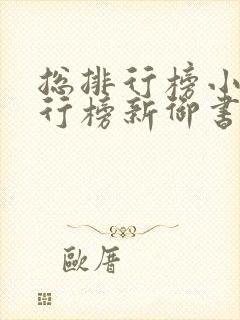 总排行榜小
行榜新御书
歐厝